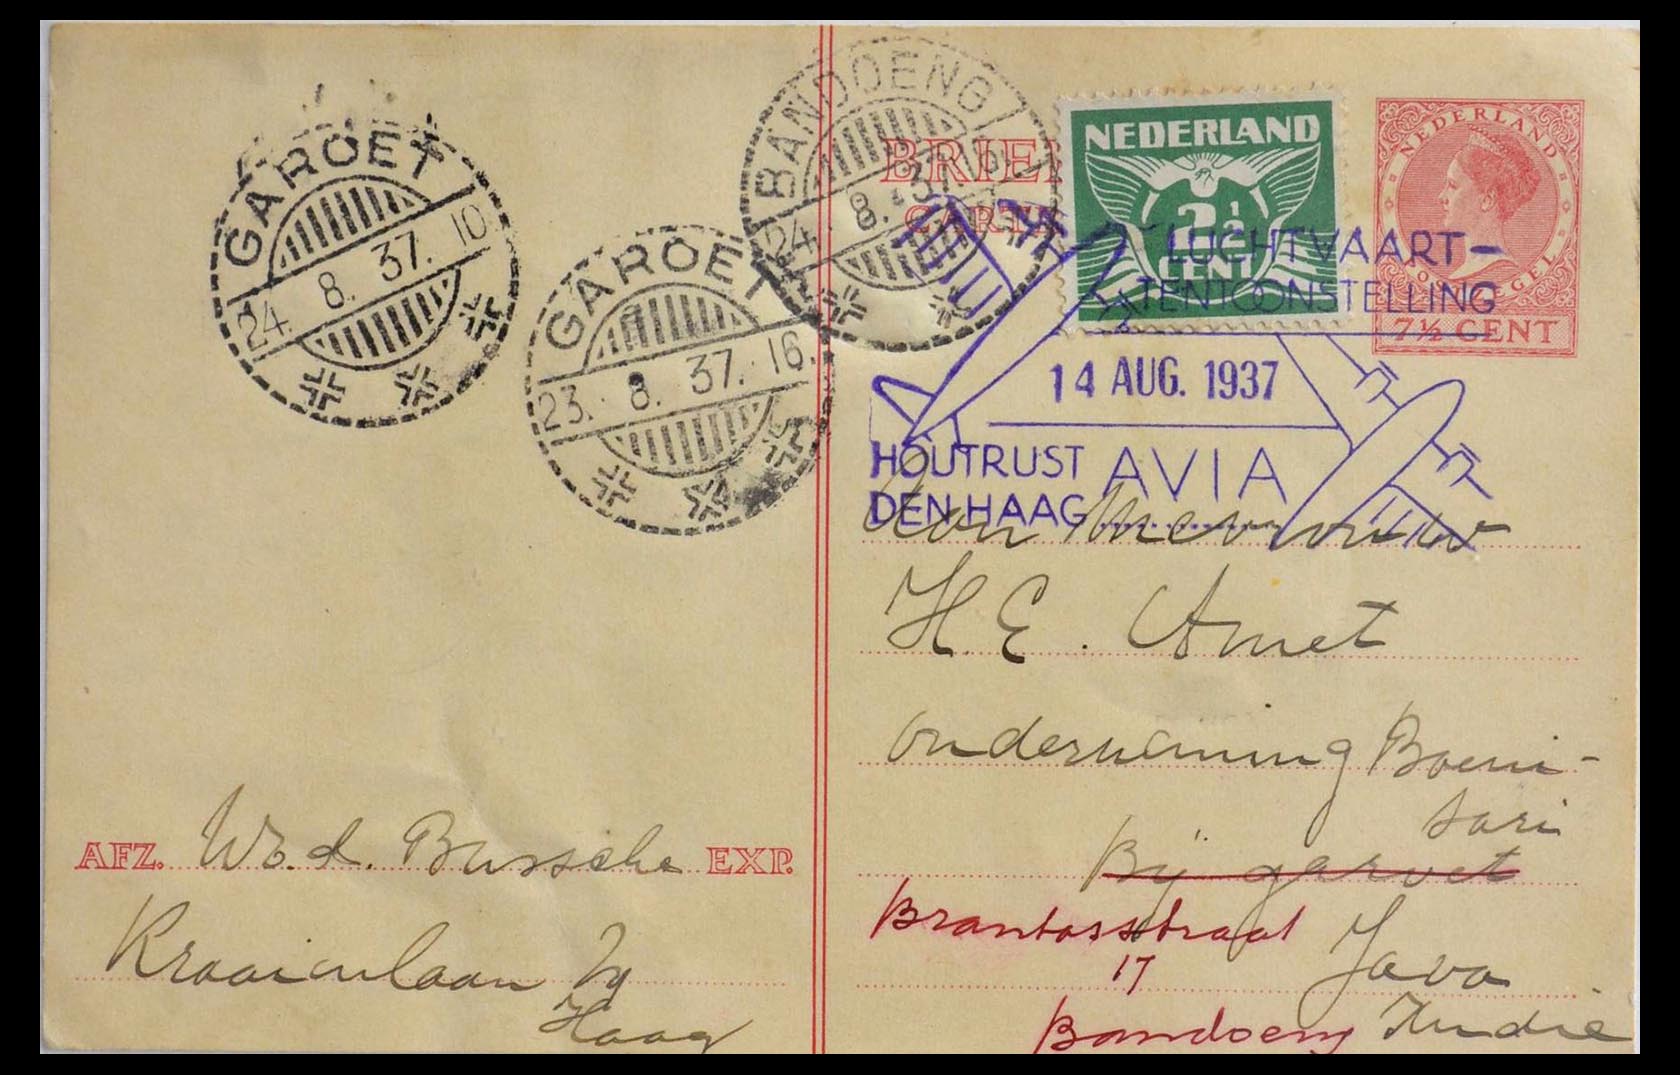 GAROET
24. 8. 37. 10
GAROET
23. 8. 37. 16.
BANDOENG
24. 8. 37.
BRIEF
CARTE
NEDERLAND
2½
CENT
NEDERLAND
7½ CENT
LUCHTVAART-
TENTOONSTELLING
14 AUG. 1937
HOUTRUST AVIA
DEN HAAG
Aan Mevrouw
H. E. Amet
onderneming Boeni-
sari
Bij garoet
Java
Indie
Brantasstraat
17
Bandoeng
AFZ. Wed. Bussche EXP.
Kraaienlaan
Haag